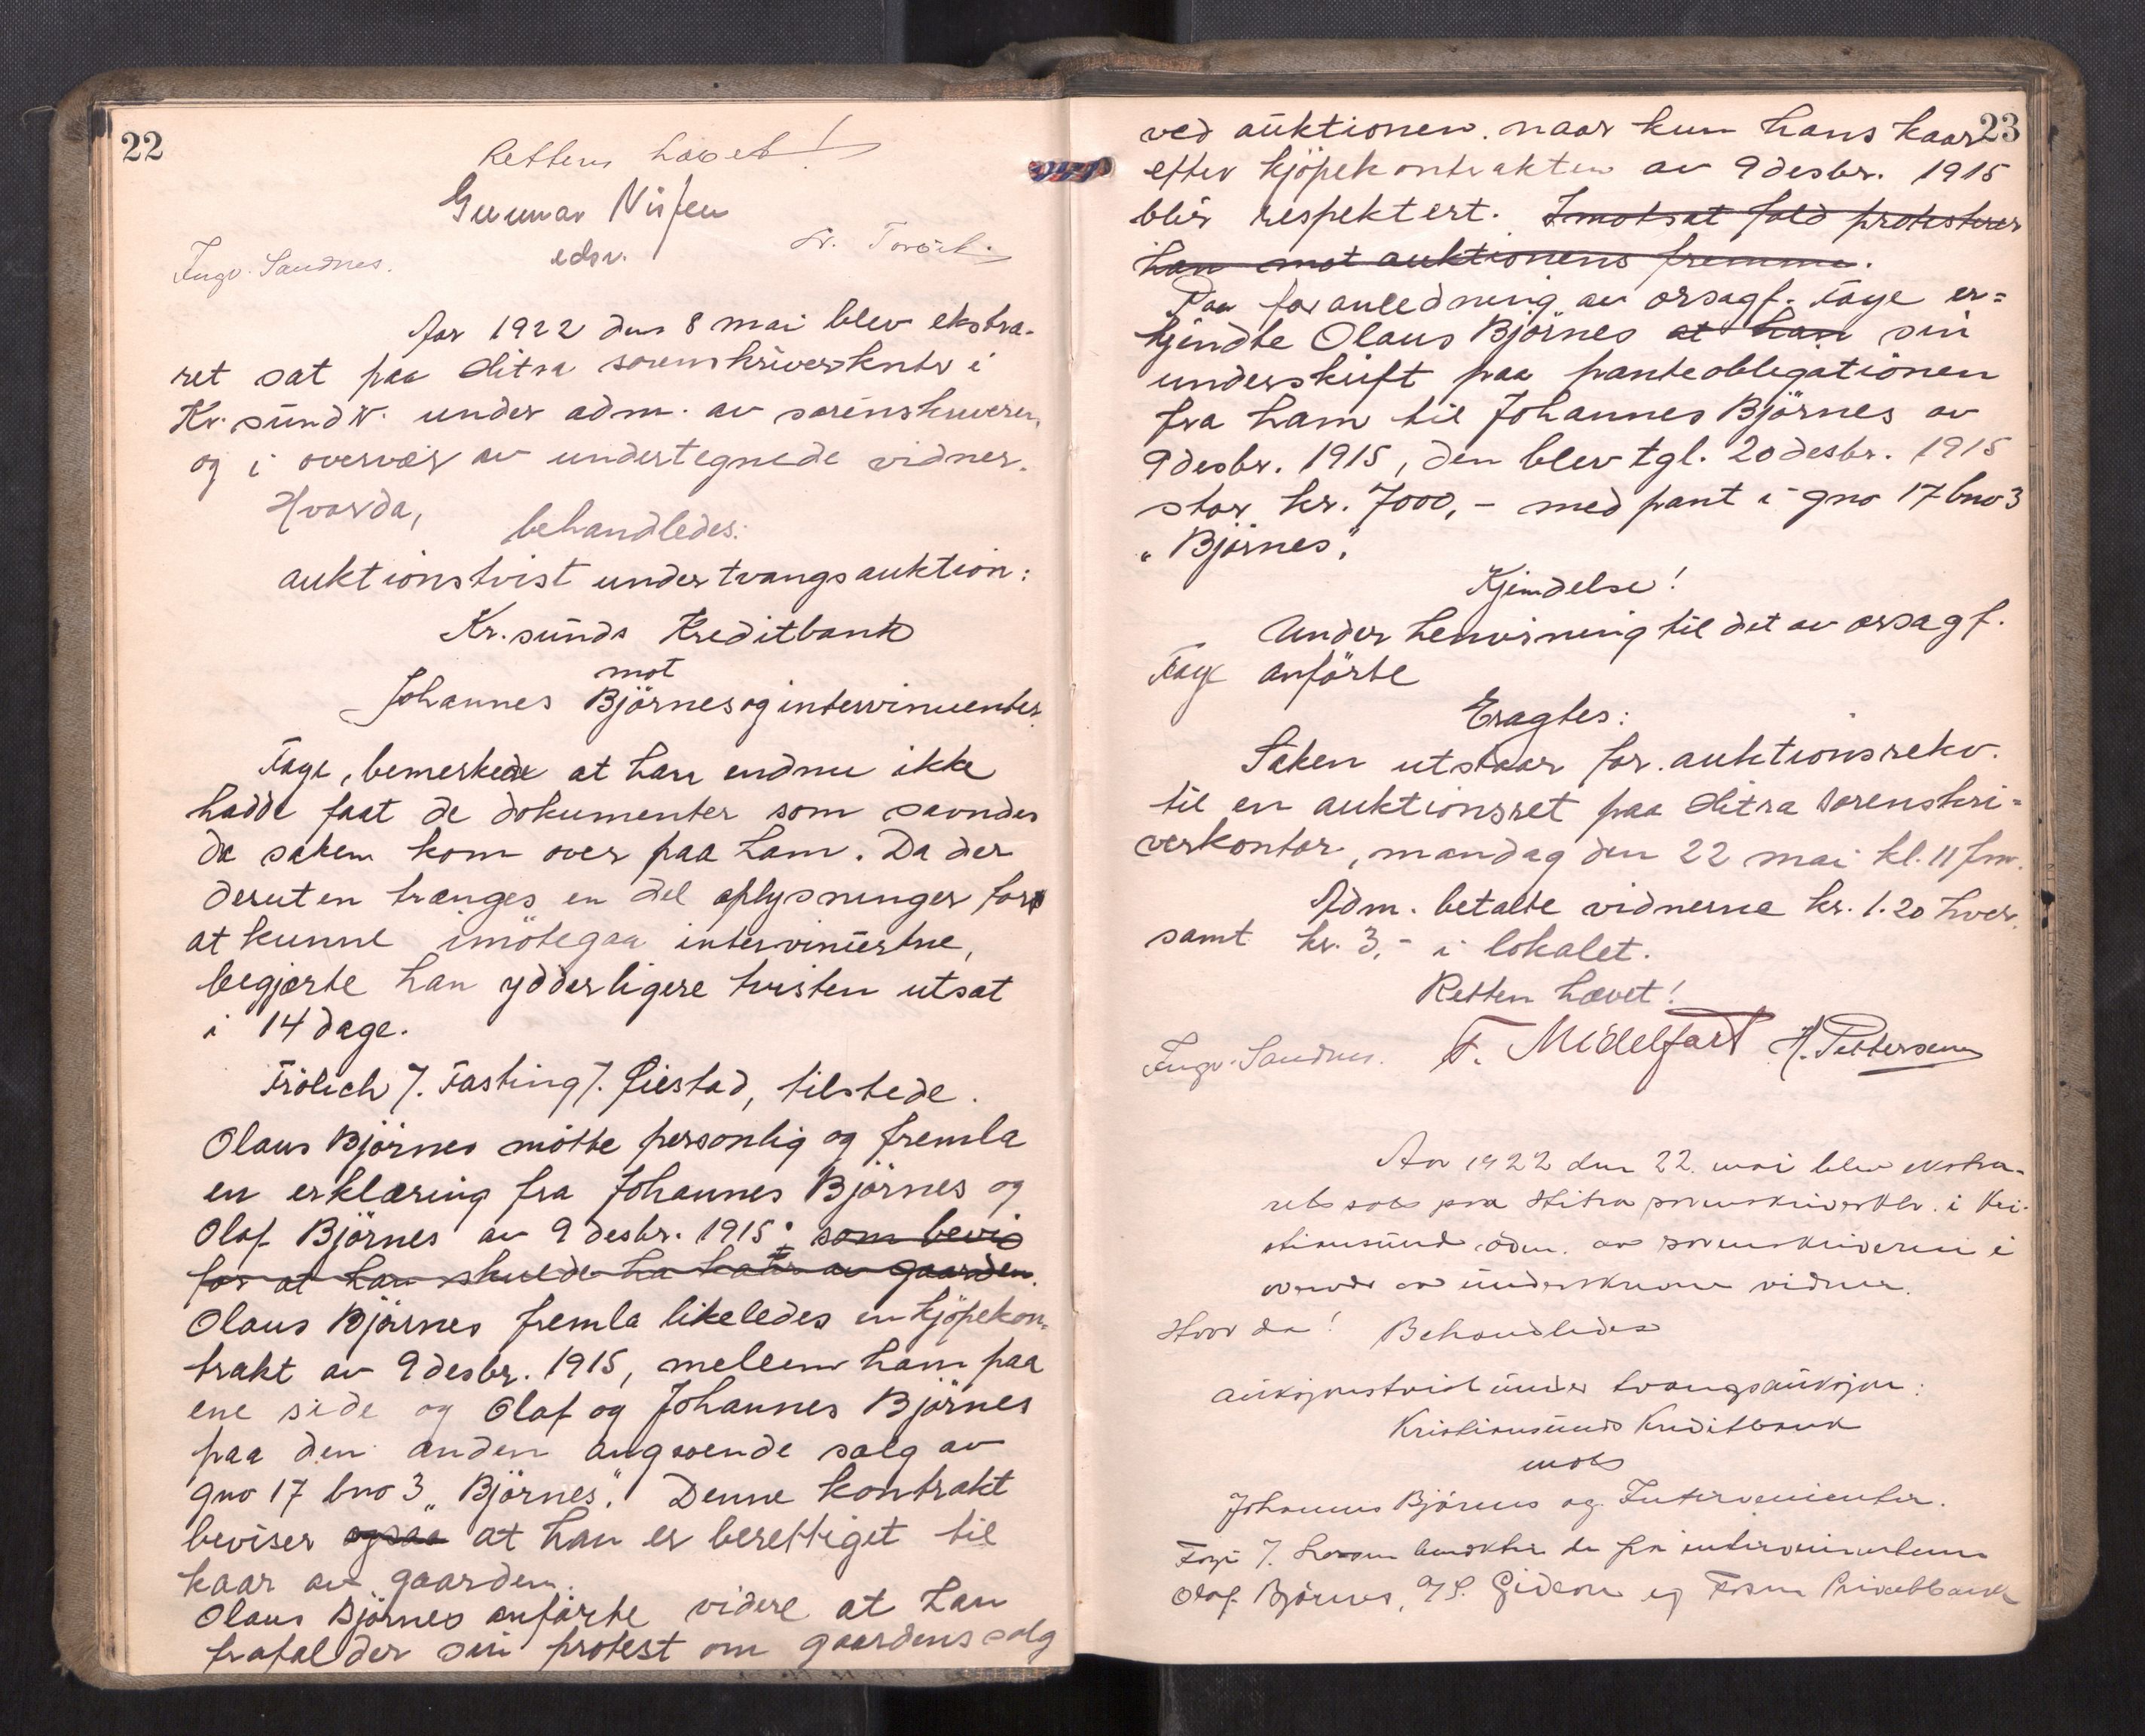 22
Retten hævet!
Gunnar Nissen
edsv.
Ingv. Sandnes.
Aar 1922 den 8 mai blev ekstra-
ret sat paa Hitra sorenskriverkntr i
Kr.sund N. under adm. av sorenskriveren,
og i overvær av undertegnede vidner.
Hvorda,
behandledes:
auktionstvist under tvangsauktion:
Kr.sunds Kreditbank
mot
Johannes Björnes og intervinienter.
Faye, bemerkede at han endnu ikke
hadde faat de dokumenter som savndes
da saken kom over paa ham. Da der
deruten trænges en del oplysninger for
at kunne imötegaa intervinierne,
begjærte han ydderligere tvisten utsat
i 14 dage.
Frölich f. Fasting f. Giestad, tilstede.
Olaus Björnes mötte personlig og fremla
en erklæring fra Johannes Björnes og
Olaf Björnes av 9 desbr. 1915. som bevis
for at han skulde ha kaar av gaarden.
Olaus Björnes fremla likeledes en kjöpekon-
trakt av 9 desbr. 1915, mellem ham paa
ene side og Olaf og Johannes Björnes
paa den anden angaaende salg av
gno 17 bno 3 „Björnes". Denne kontrakt
beviser ogsaa at han er berettiget til
kaar av gaarden.
Olaus Björnes anförte videre at han
frafalder sin protest om gaardens salg
23
ved auktionen. naar kun hans kaar
efter kjöpekontrakten av 9 desbr. 1915
blir respektert. I motsat fald protesterer
han mot auktionens fremme.
Paa foranledning av orsagf. Faye er=
kjendte Olaus Björnes at han sin
underskrift paa panteobligationen
fra ham til Johannes Björnes av
9 desbr. 1915, den blev tgl. 20 desbr. 1915
stor kr. 7000,- med pant i gno 17 bno 3
„Björnes".
Kjendelse!
Under henvisning til det av orsagf.
Faye anförte
Eragtes:
Saken utstaar for auktionsrekv.
til en auktionsret paa Hitra sorenskri=
verkontor, mandag den 22 mai kl. 11 fm.
Adm. betalte vidnerne kr. 1.20 hver.
samt kr. 3,- i lokalet.
Retten hævet!
Ingv. Sandnes. F. Midelfart H. Pettersen
Aar 1922 den 22. mai blev ekstra-
ret sat paa Hitra sorenskriverktr. i Kri-
stiansund adm. av sorenskriveren i
overvær av underskrevne vidner.
Hvor da! Behandledes
auksjonstvist under tvangsauksjon:
Kristiansunds Kreditbank
mot
Johannes Björnes og Intervenienter.
Faye f. bemerkte de fra intervenienterne
Olaf Björnes, Gideon og Fosen Privatbank